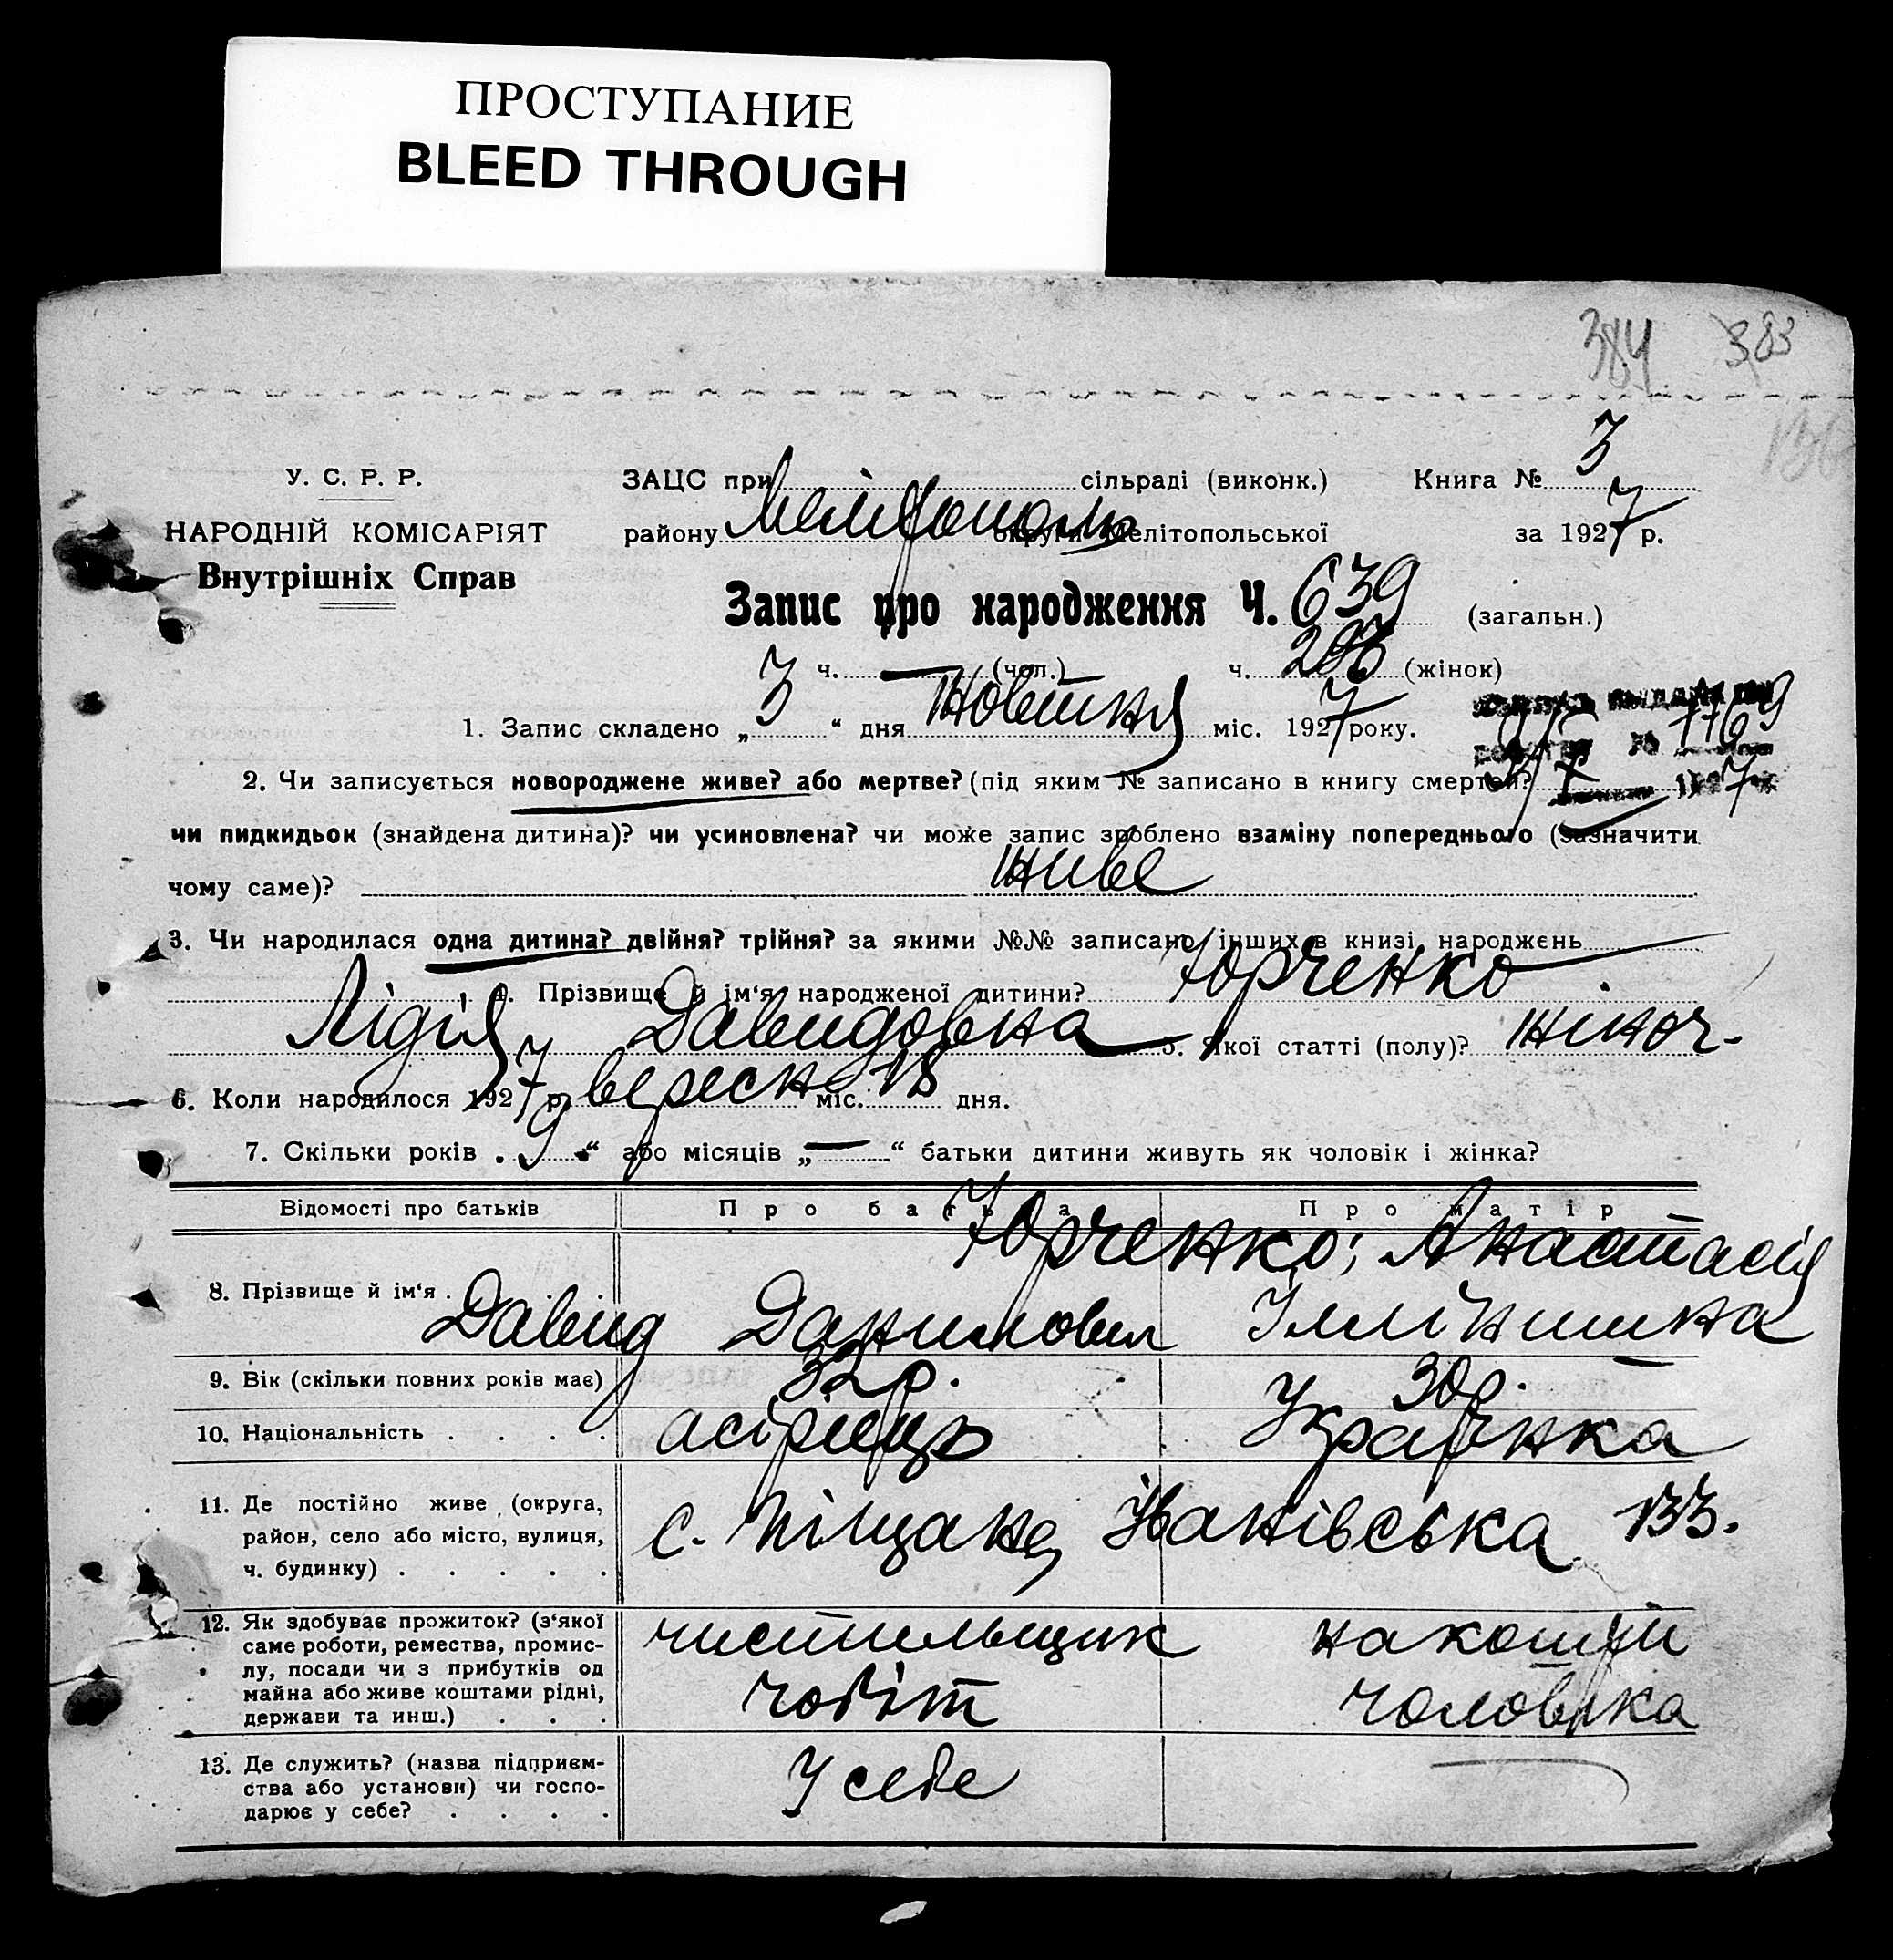 ПРОСТУПАНИЕ
BLEED THROUGH
384 383
У. С. Р. Р.
НАРОДНІЙ КОМІСАРІЯТ
Внутрішніх Справ
ЗАЦС при сільраді (виконк.) Книга № 3
району Мелітополь округи Мелітопольської за 1927 р.
Запис про народження Ч. 639 (загальн.)
ч. — (чол.) ч. 293 (жінок)
1. Запис складено „ 3 “ дня Жовтня міс. 1927 року.
2. Чи записується новороджене живе? або мертве? (під яким № записано в книгу смертей?
чи пидкидьок (знайдена дитина)? чи усиновлена? чи може запис зроблено взаміну попереднього (зазначити
чому саме)? живе
3. Чи народилася одна дитина? двійня? трійня? за якими №№ записано інших в книзі народжень
4. Прізвище й ім‘я народженої дитини? Юрченко
Лідія Давидовна 5. Якої статті (полу)? жіноч-
6. Коли народилося 1927 р. вересня міс. 18 дня.
7. Скільки років „ 9 “ або місяців „ — “ батьки дитини живуть як чоловік і жінка?
Відомості про батьків Про батька Про матір
8. Прізвище й ім‘я . Юрченко; Анастасія
Давид Данилович Іллінишна
9. Вік (скільки повних років має) 32 р. 30 р.
10. Національність . . . . асіріець Українка
11. Де постійно живе (округа, район, село або місто, вулиця, ч. будинку) . . . . . с. Піщане, Іванівська 133.
12. Як здобуває прожиток? (з‘якої саме роботи, ремества, промис-
лу, посади чи з прибутків од
майна або живе коштами рідні,
держави та инш.) . . . чистильщик чобіт на кошти чоловіка
13. Де служить? (назва підприєм-
ства або установи) чи госпо-
дарює у себе? . . . . У себе